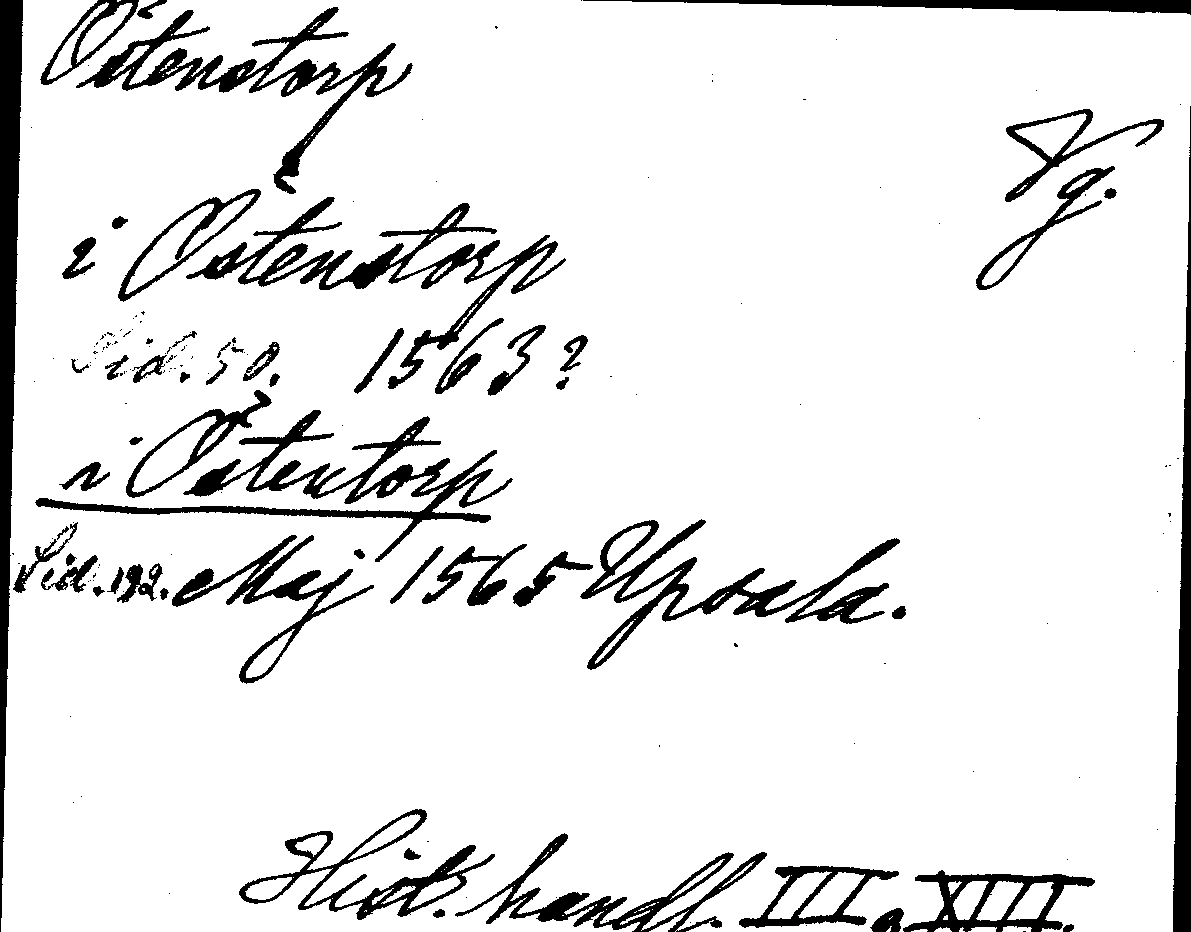 Östenstorp
Vg.
i Östenstorp
Sid. 50. 1563?
i Östentorp
Sid. 192. Maj 1565 Upsala.
Hist. handl. III o XIII.